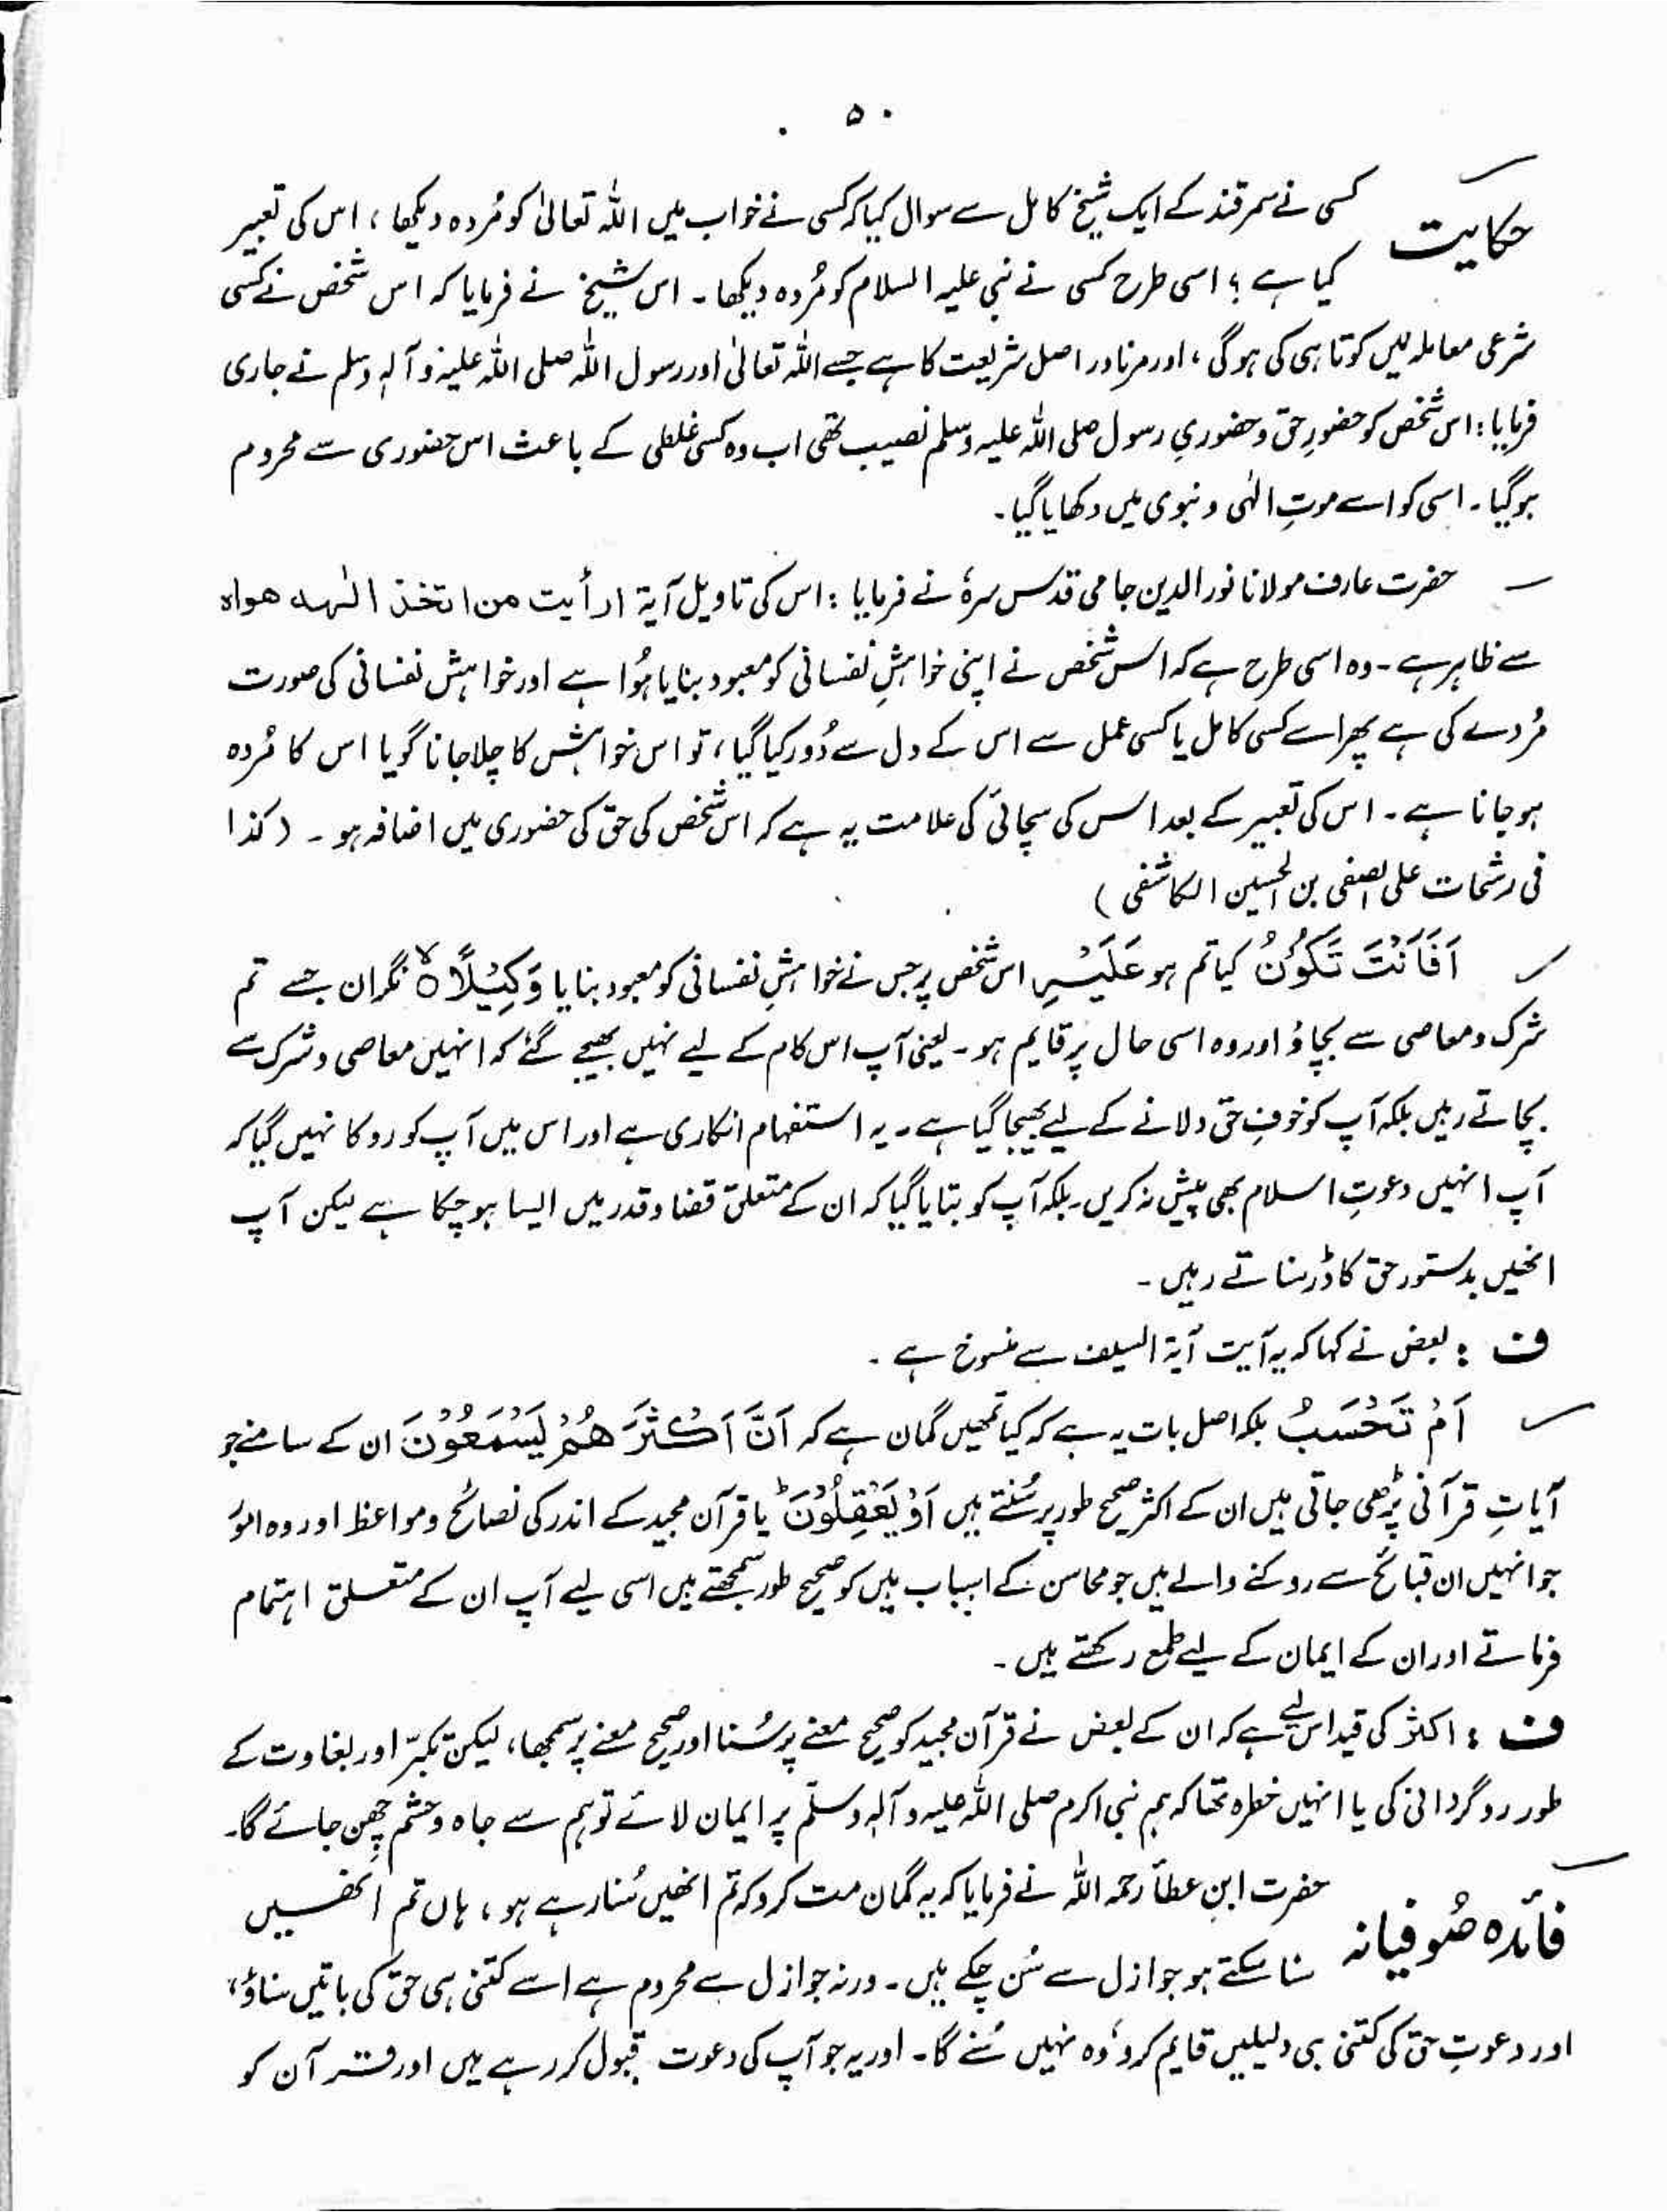 ۵۰
حکایت کسی نے سمرقند کے ایک شیخ کامل سے سوال کیا کہ کسی نے خواب میں اللہ تعالیٰ کو مُردہ دیکھا ، اس کی تعبیر
کیا ہے ؟ اسی طرح کسی نے نبی علیہ السلام کو مُردہ دیکھا ۔ اس شیخ نے فرمایا کہ اس شخص نے کسی
شرعی معاملہ میں کوتاہی کی ہوگی ، اور مرنا دراصل شریعت کا ہے جسے اللہ تعالیٰ اور رسول اللہ صلی اللہ علیہ و آلہٖ وسلم نے جاری
فرمایا : اس شخص کو حضورِ حق و حضوریِ رسول صلی اللہ علیہ وسلم نصیب تھی اب وہ کسی غلطی کے باعث اس حضوری سے محروم
ہوگیا ۔ اسی کو اسے موتِ الٰہی و نبوی میں دکھایا گیا ۔
حضرت عارف مولانا نور الدین جامی قدس سرہٗ نے فرمایا : اس کی تاویل آیۃ ارأیت من اتخذ الٰہہ ھواہ
سے ظاہر ہے ۔ وہ اسی طرح ہے کہ اس شخص نے اپنی خواہشِ نفسانی کو معبود بنایا ہُوا ہے اور خواہش نفسانی کی صورت
مُردے کی ہے پھر اسے کسی کامل یا کسی عمل سے اس کے دل سے دُور کیا گیا ، تو اس خواہش کا چلا جانا گویا اس کا مُردہ
ہو جانا ہے ۔ اس کی تعبیر کے بعد اس کی سچائی کی علامت یہ ہے کہ اس شخص کی حق کی حضوری میں اضافہ ہو ۔ (کذا
فی رشحات علی الصفی بن الحسین الکاشفی)
اَفَاَنْتَ تَکُوْنُ کیا تم ہو عَلَیْہِ اس شخص پر جس نے خواہشِ نفسانی کو معبود بنایا وَکِیْلًا ۝ نگران جسے تم
شرک و معاصی سے بچاؤ اور وہ اسی حال پر قایم ہو ۔ یعنی آپ اس کام کے لیے نہیں بھیجے گئے کہ انہیں معاصی و شرک سے
بچاتے رہیں بلکہ آپ کو خوفِ حق دلانے کے لیے بھیجا گیا ہے ۔ یہ استفہام انکاری ہے اور اس میں آپ کو روکا نہیں گیا کہ
آپ انہیں دعوتِ اسلام بھی پیش نہ کریں ۔ بلکہ آپ کو بتایا گیا کہ ان کے متعلق قضا و قدر میں ایسا ہو چکا ہے لیکن آپ
انھیں بدستور حق کا ڈر سناتے رہیں ۔
ف : بعض نے کہا کہ یہ آیت آیۃ السیف سے منسوخ ہے ۔
اَمْ تَحْسَبُ بلکہ اصل بات یہ ہے کہ کیا تمھیں گمان ہے کہ اَنَّ اَکْثَرَھُمْ یَسْمَعُوْنَ ان کے سامنے جو
آیاتِ قرآنی پڑھی جاتی ہیں ان کے اکثر صحیح طور پر سُنتے ہیں اَوْ یَعْقِلُوْنَ ؕ یا قرآن مجید کے اندر کی نصائح و مواعظ اور وہ امور
جو انہیں ان قبائح سے روکنے والے ہیں جو محاسن کے اسباب ہیں کو صحیح طور سمجھتے ہیں اسی لیے آپ ان کے متعلق اہتمام
فرماتے اور ان کے ایمان کے لیے طمع رکھتے ہیں ۔
ف : اکثر کی قید اس لیے ہے کہ ان کے بعض نے قرآن مجید کو صحیح معنے پر سُنا اور صحیح معنے پر سمجھا ، لیکن تکبّر اور بغاوت کے
طور روگردانی کی یا انہیں خطرہ تھا کہ ہم نبی اکرم صلی اللہ علیہ و آلہٖ وسلم پر ایمان لائے تو ہم سے جاہ و حشم چھن جائے گا۔
فائدہ صُوفیانہ حضرت ابن عطاء رحمہ اللہ نے فرمایا کہ یہ گمان مت کرو کہ تم انھیں سُنا رہے ہو ، ہاں تم انھیں
سنا سکتے ہو جو ازل سے سُن چکے ہیں ۔ ورنہ جو ازل سے محروم ہے اسے کتنی ہی حق کی باتیں سناؤ،
اور دعوتِ حق کی کتنی ہی دلیلیں قایم کرو ، وہ نہیں سُنے گا ۔ اور یہ جو آپ کی دعوت قبول کر رہے ہیں اور قرآن کو